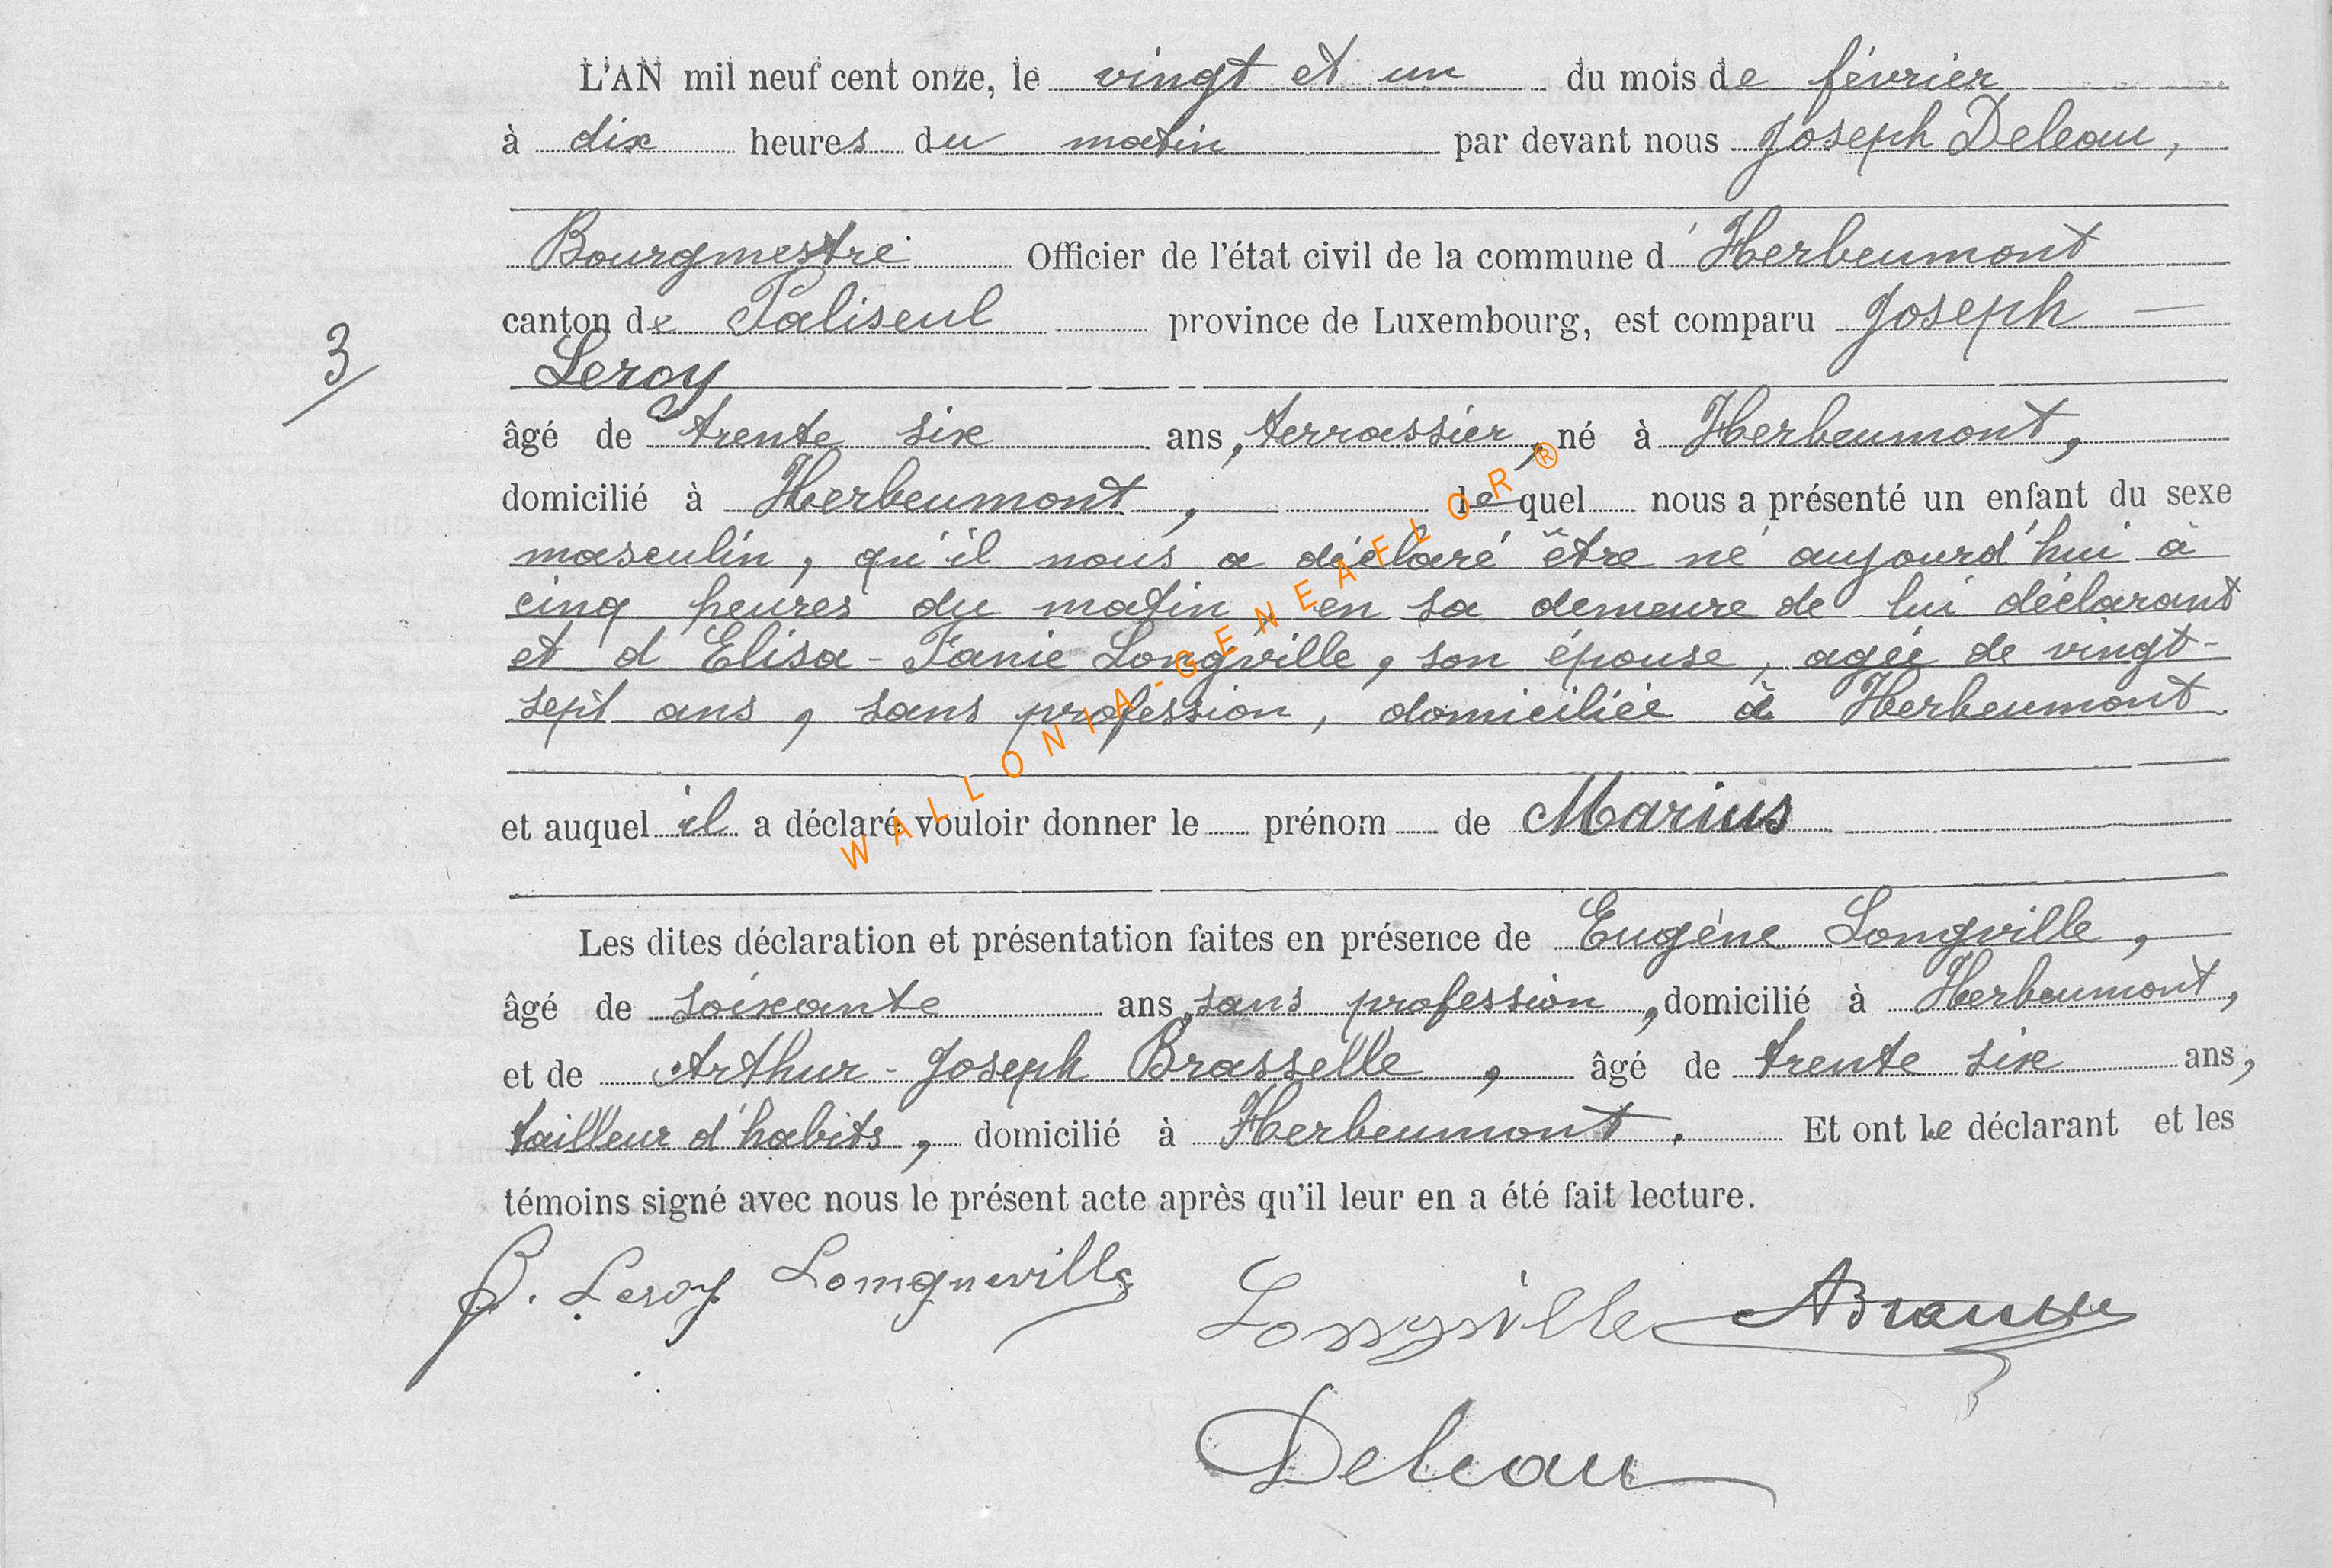 L'AN mil neuf cent onze, le vingt et un du mois de février
à dix heures du matin par devant nous Joseph Deleau,
Bourgmestre Officier de l'état civil de la commune d'Herbeumont
canton de Paliseul province de Luxembourg, est comparu Joseph
3
Leroy
âgé de trente six ans, terrassier, né à Herbeumont,
domicilié à Herbeumont, lequel nous a présenté un enfant du sexe
masculin, qu'il nous a déclaré être né aujourd'hui à
cinq heures du matin en sa demeure de lui déclarant
et d Elisa-Fanie Longville, son épouse, agée de vingt-
sept ans, sans profession, domiciliée à Herbeumont.
et auquel il a déclaré vouloir donner le prénom de Marius
Les dites déclaration et présentation faites en présence de Eugène Longville,
âgé de soixante ans, sans profession, domicilié à Herbeumont,
et de Arthur-Joseph Brasselle, âgé de trente six ans,
tailleur d'habits, domicilié à Herbeumont. Et ont le déclarant et les
témoins signé avec nous le présent acte après qu'il leur en a été fait lecture.
J. Leroy Longueville
Longville
Deleau
WALLONIA-GENEAFLOR®